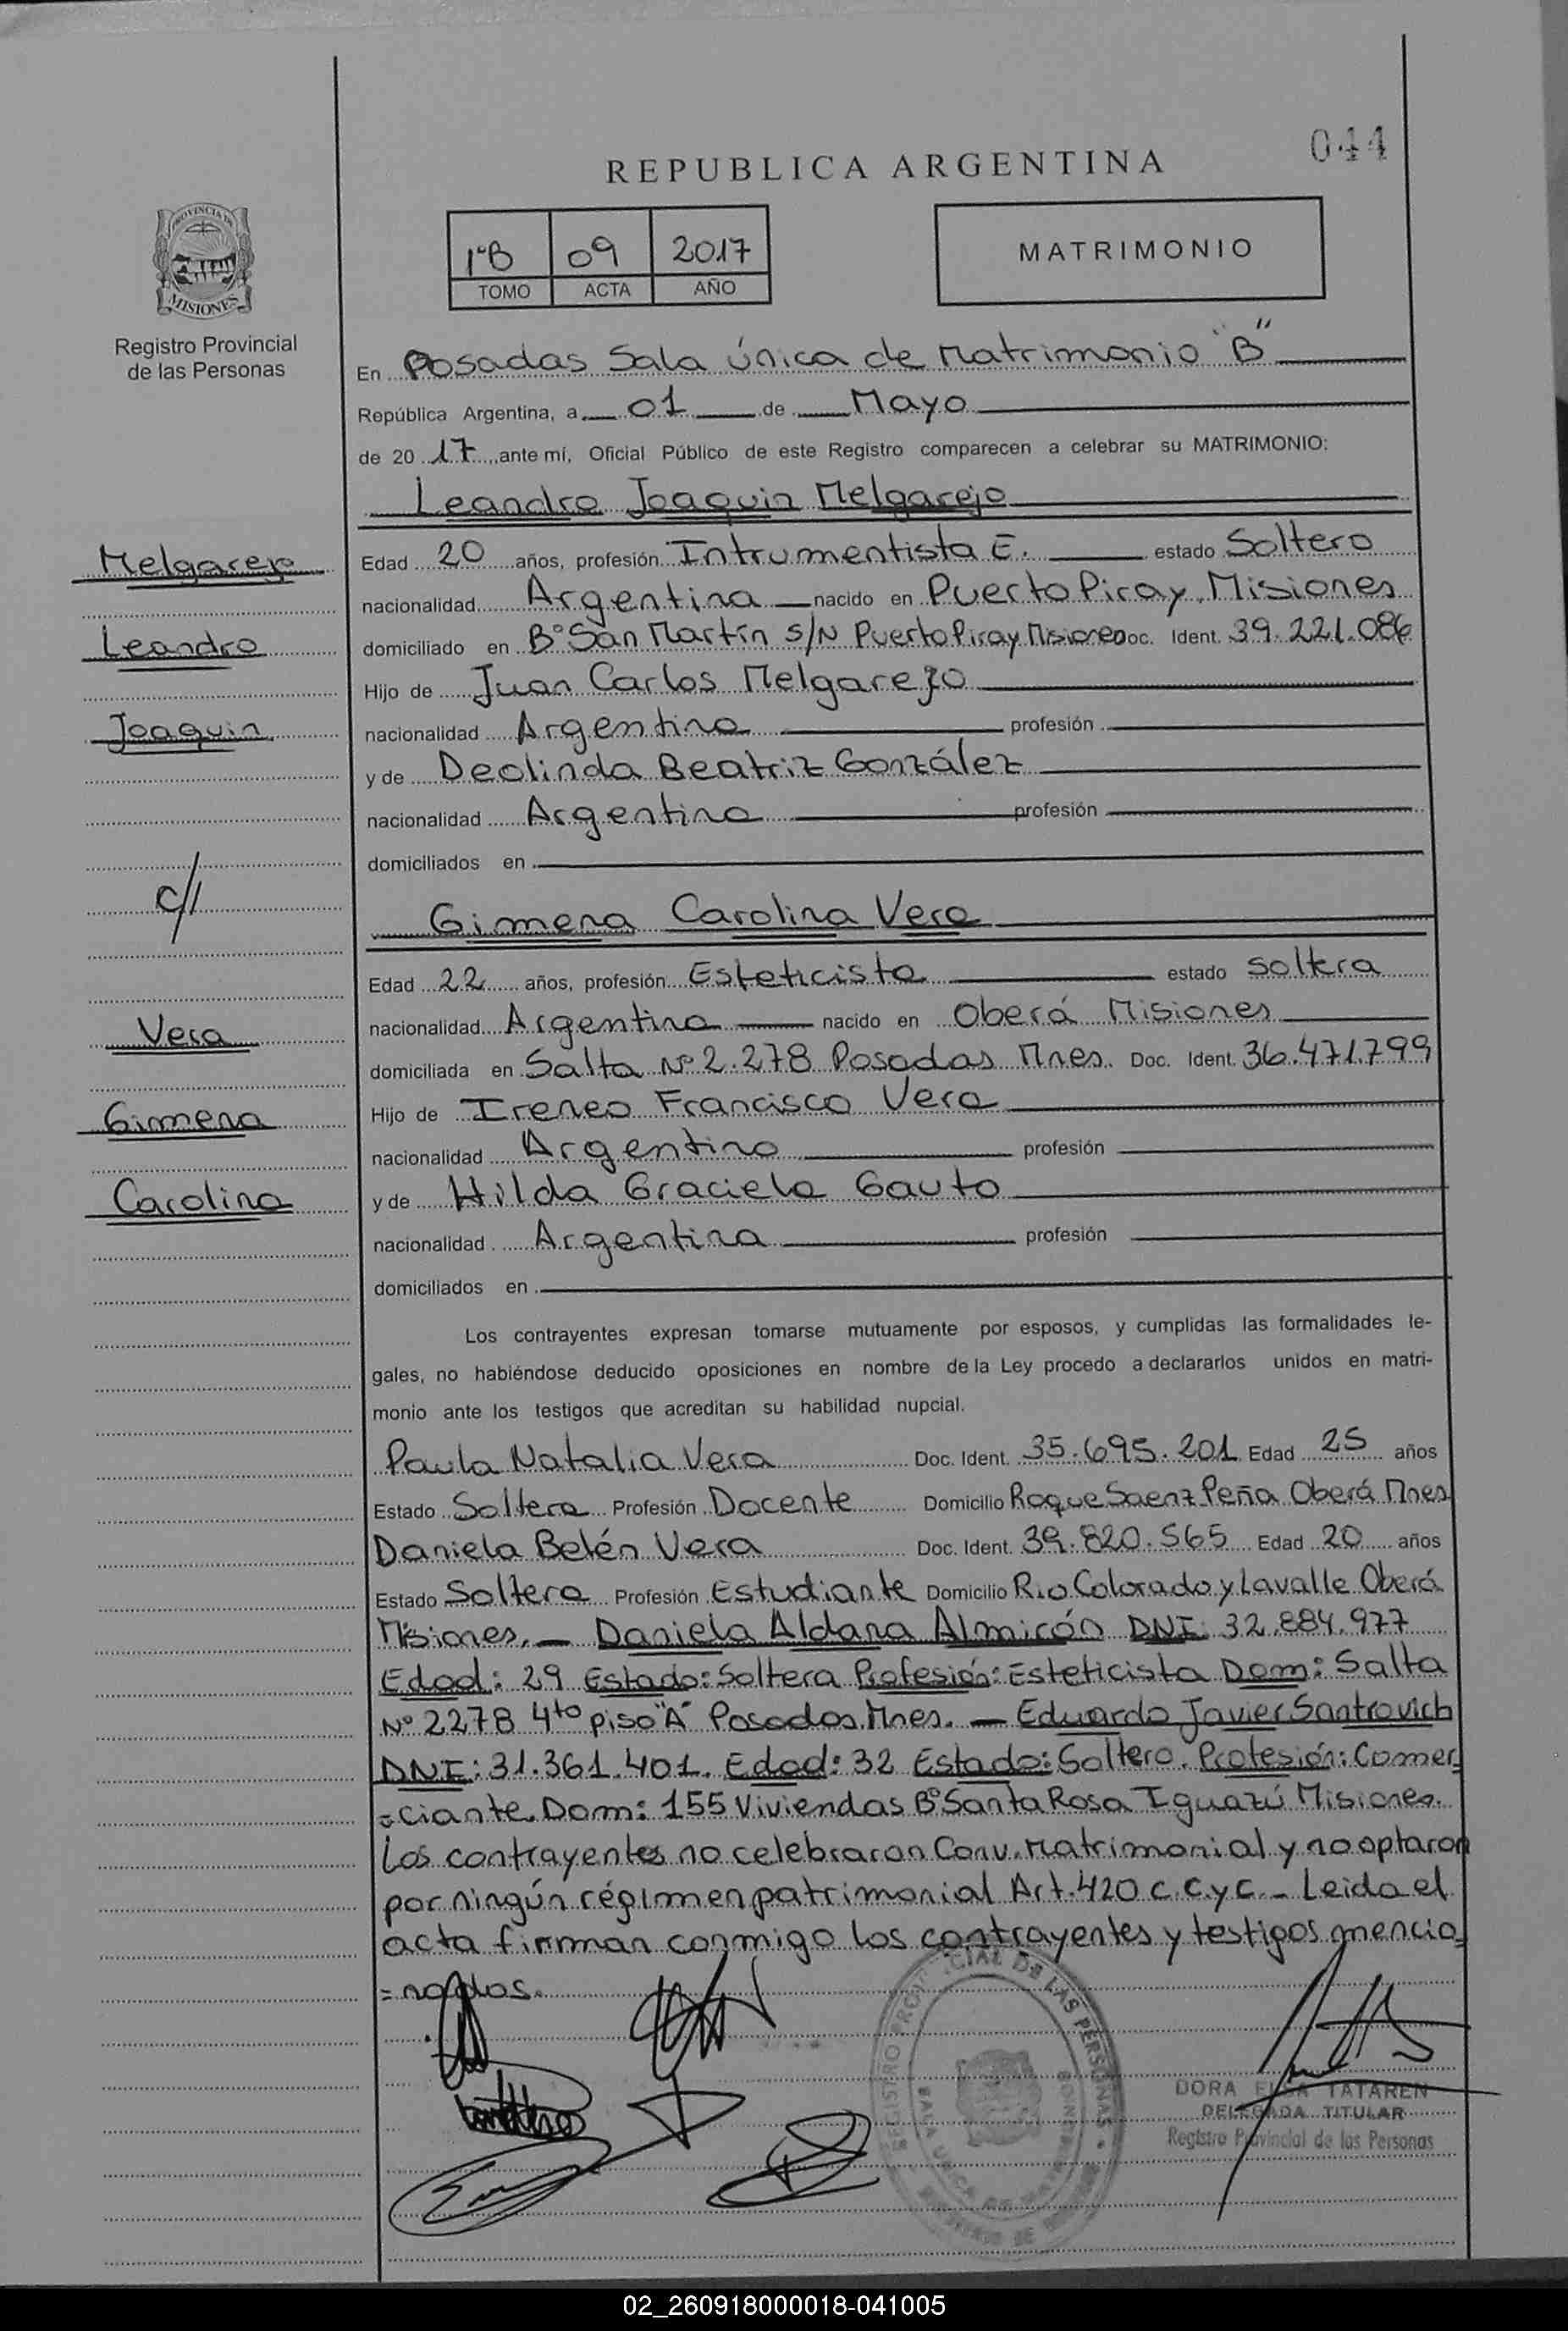 044
REPUBLICA ARGENTINA
1°B 09 2017
TOMO ACTA AÑO
MATRIMONIO
PROVINCIA DE
MISIONES
Registro Provincial
de las Personas
En Posadas Sala única de Matrimonio "B"
República Argentina, a 01 de Mayo
de 20 17 ante mí, Oficial Público de este Registro comparecen a celebrar su MATRIMONIO:
Leandro Joaquin Melgarejo
Melgarejo
Leandro
Joaquin
c//
Vera
Gimena
Carolina
Edad 20 años, profesión Intrumentista E. estado Soltero
nacionalidad Argentina nacido en Puerto Piray Misiones
domiciliado en B° San Martín S/N Puerto Piray Misiones Doc. Ident. 39.221.086
Hijo de Juan Carlos Melgarejo
nacionalidad Argentino profesión
y de Deolinda Beatriz González
nacionalidad Argentina profesión
domiciliados en
Gimena Carolina Vera
Edad 22 años, profesión Esteticista estado Soltera
nacionalidad Argentina nacido en Oberá Misiones
domiciliada en Salta N° 2.278 Posadas Mnes. Doc. Ident. 36.471.799
Hijo de Ireneo Francisco Vera
nacionalidad Argentino profesión
y de Hilda Graciela Gauto
nacionalidad Argentina profesión
domiciliados en
Los contrayentes expresan tomarse mutuamente por esposos, y cumplidas las formalidades le-
gales, no habiéndose deducido oposiciones en nombre de la Ley procedo a declararlos unidos en matri-
monio ante los testigos que acreditan su habilidad nupcial.
Paula Natalia Vera Doc. Ident. 35.695.201 Edad 25 años
Estado Soltera Profesión Docente Domicilio Roque Saenz Peña Oberá Mnes
Daniela Belén Vera Doc. Ident. 39.820.565 Edad 20 años
Estado Soltera Profesión Estudiante Domicilio Rio Colorado y Lavalle Oberá
Misiones. — Daniela Aldana Almirón DNI: 32.884.977
Edad: 29 Estado: Soltera Profesión: Esteticista Dom: Salta
N° 2278 4to piso "A" Posadas Mnes. — Eduardo Javier Santrovich
DNI: 31.361.401. Edad: 32 Estado: Soltero. Profesión: Comer
=ciante. Dom: 155 Viviendas B° Santa Rosa Iguazú Misiones.
Los contrayentes no celebraron Conv. Matrimonial y no optaron
por ningún régimen patrimonial Art. 420 C.C.y C. - Leida el
acta firman conmigo los contrayentes y testigos mencio=
=nados.
REGISTRO PROVINCIAL DE LAS PERSONAS
DORA ELSA TATAREN
DELEGADA TITULAR
Registro Provincial de las Personas
02_260918000018-041005